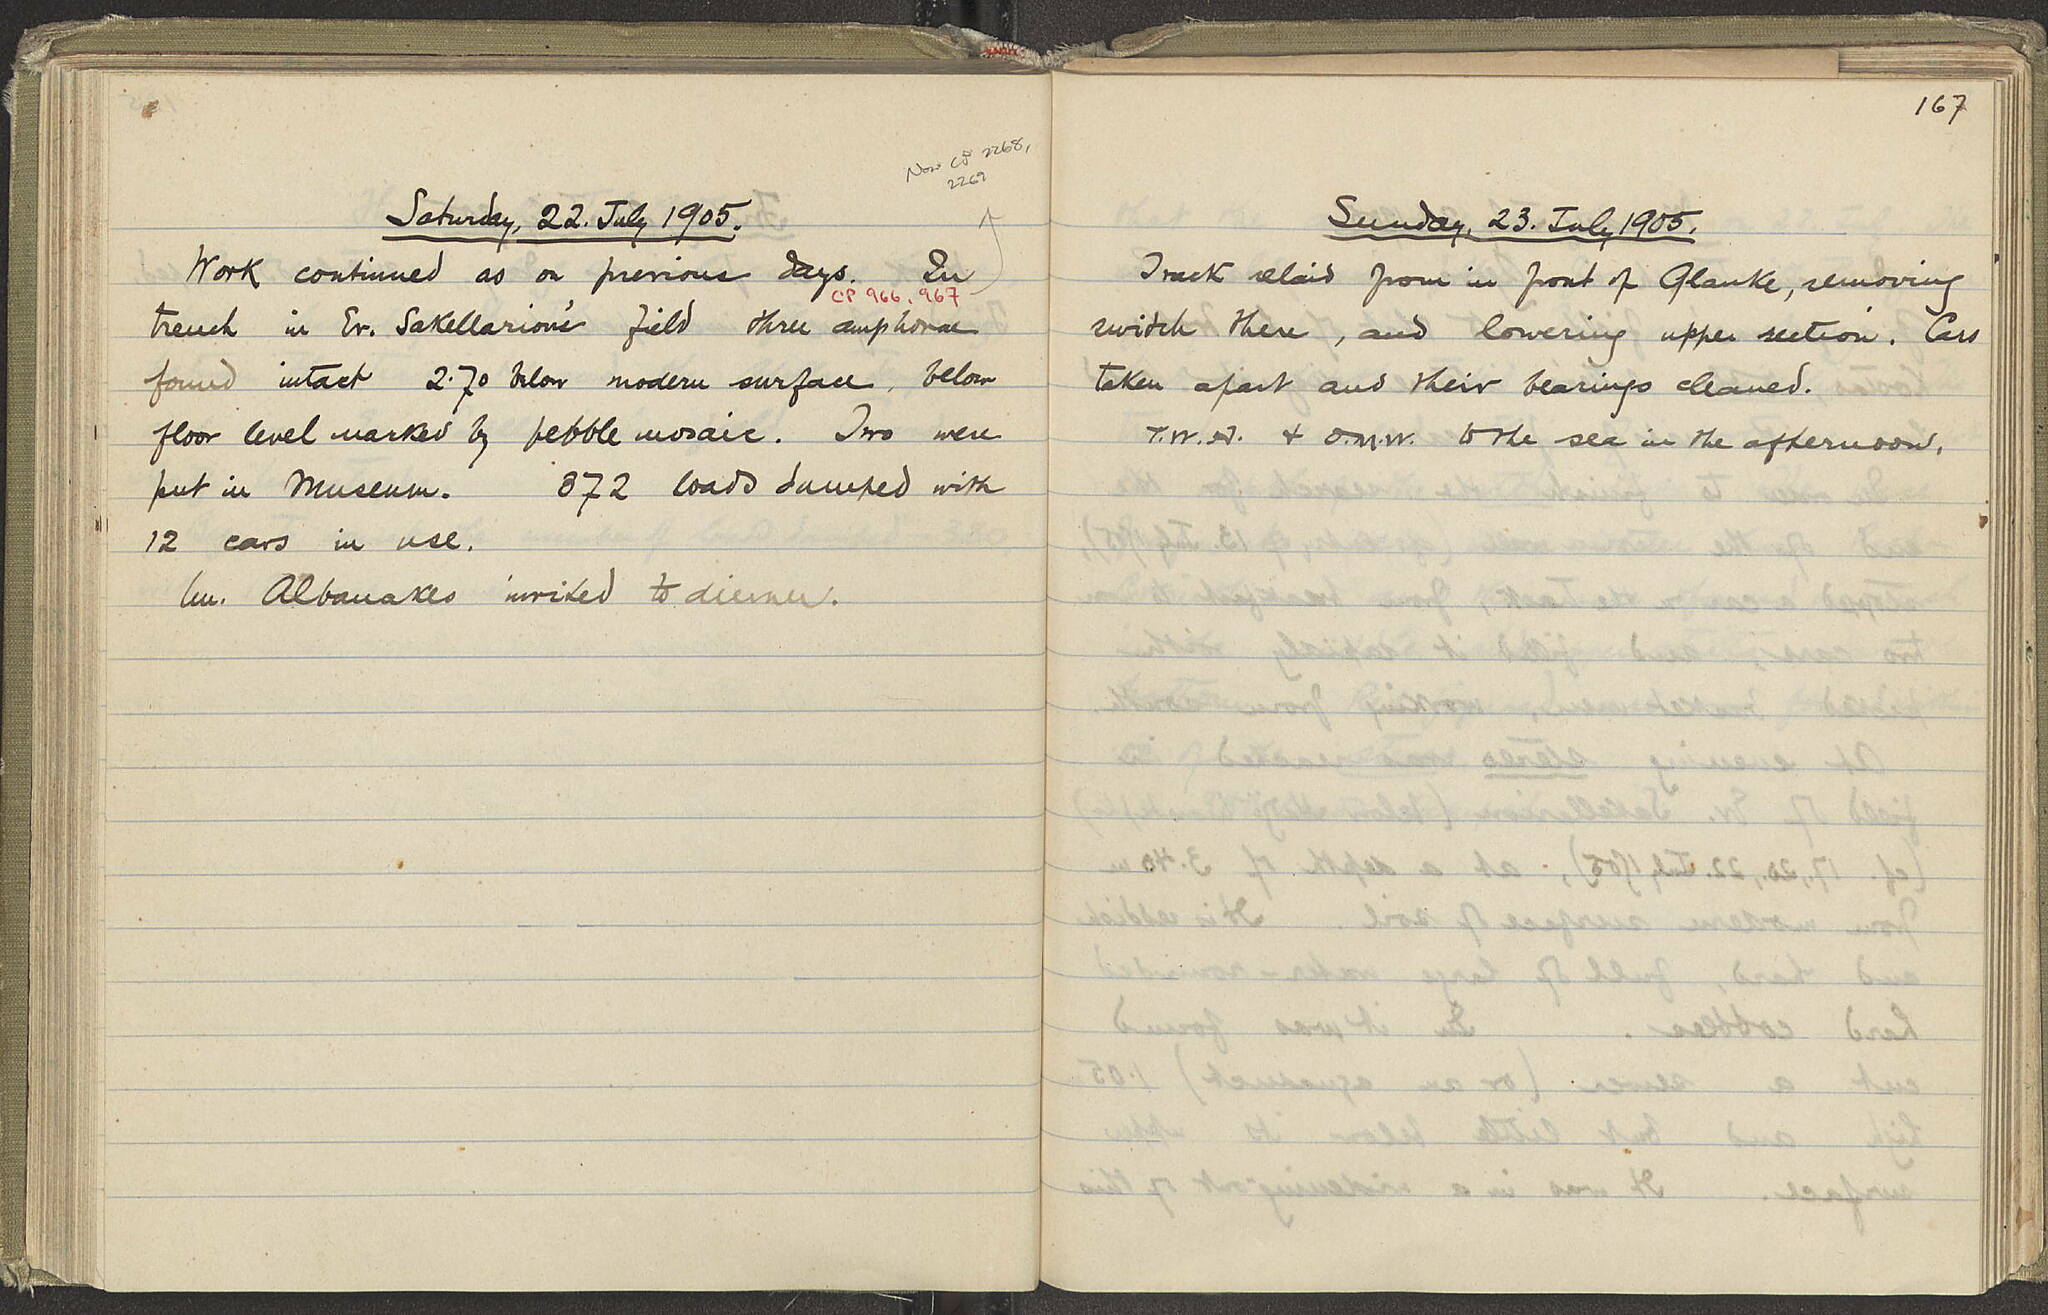 Now CP 2268,
2269
Saturday, 22. July 1905.
Work continued as on previous days. In
CP 966, 967
trench in Ev. Sakellariou's field three amphorae
found intact 2.70 below modern surface, below
floor level marked by pebble mosaic. Two were
put in Museum. 372 loads dumped with
12 cars in use.
Albanakes invited to dinner.
167
Sunday, 23. July 1905.
Track relaid from in front of Glauke, removing
switch there, and lowering upper section. Cars
taken apart and their bearings cleaned.
& O.M.W. to the sea in the afternoon.